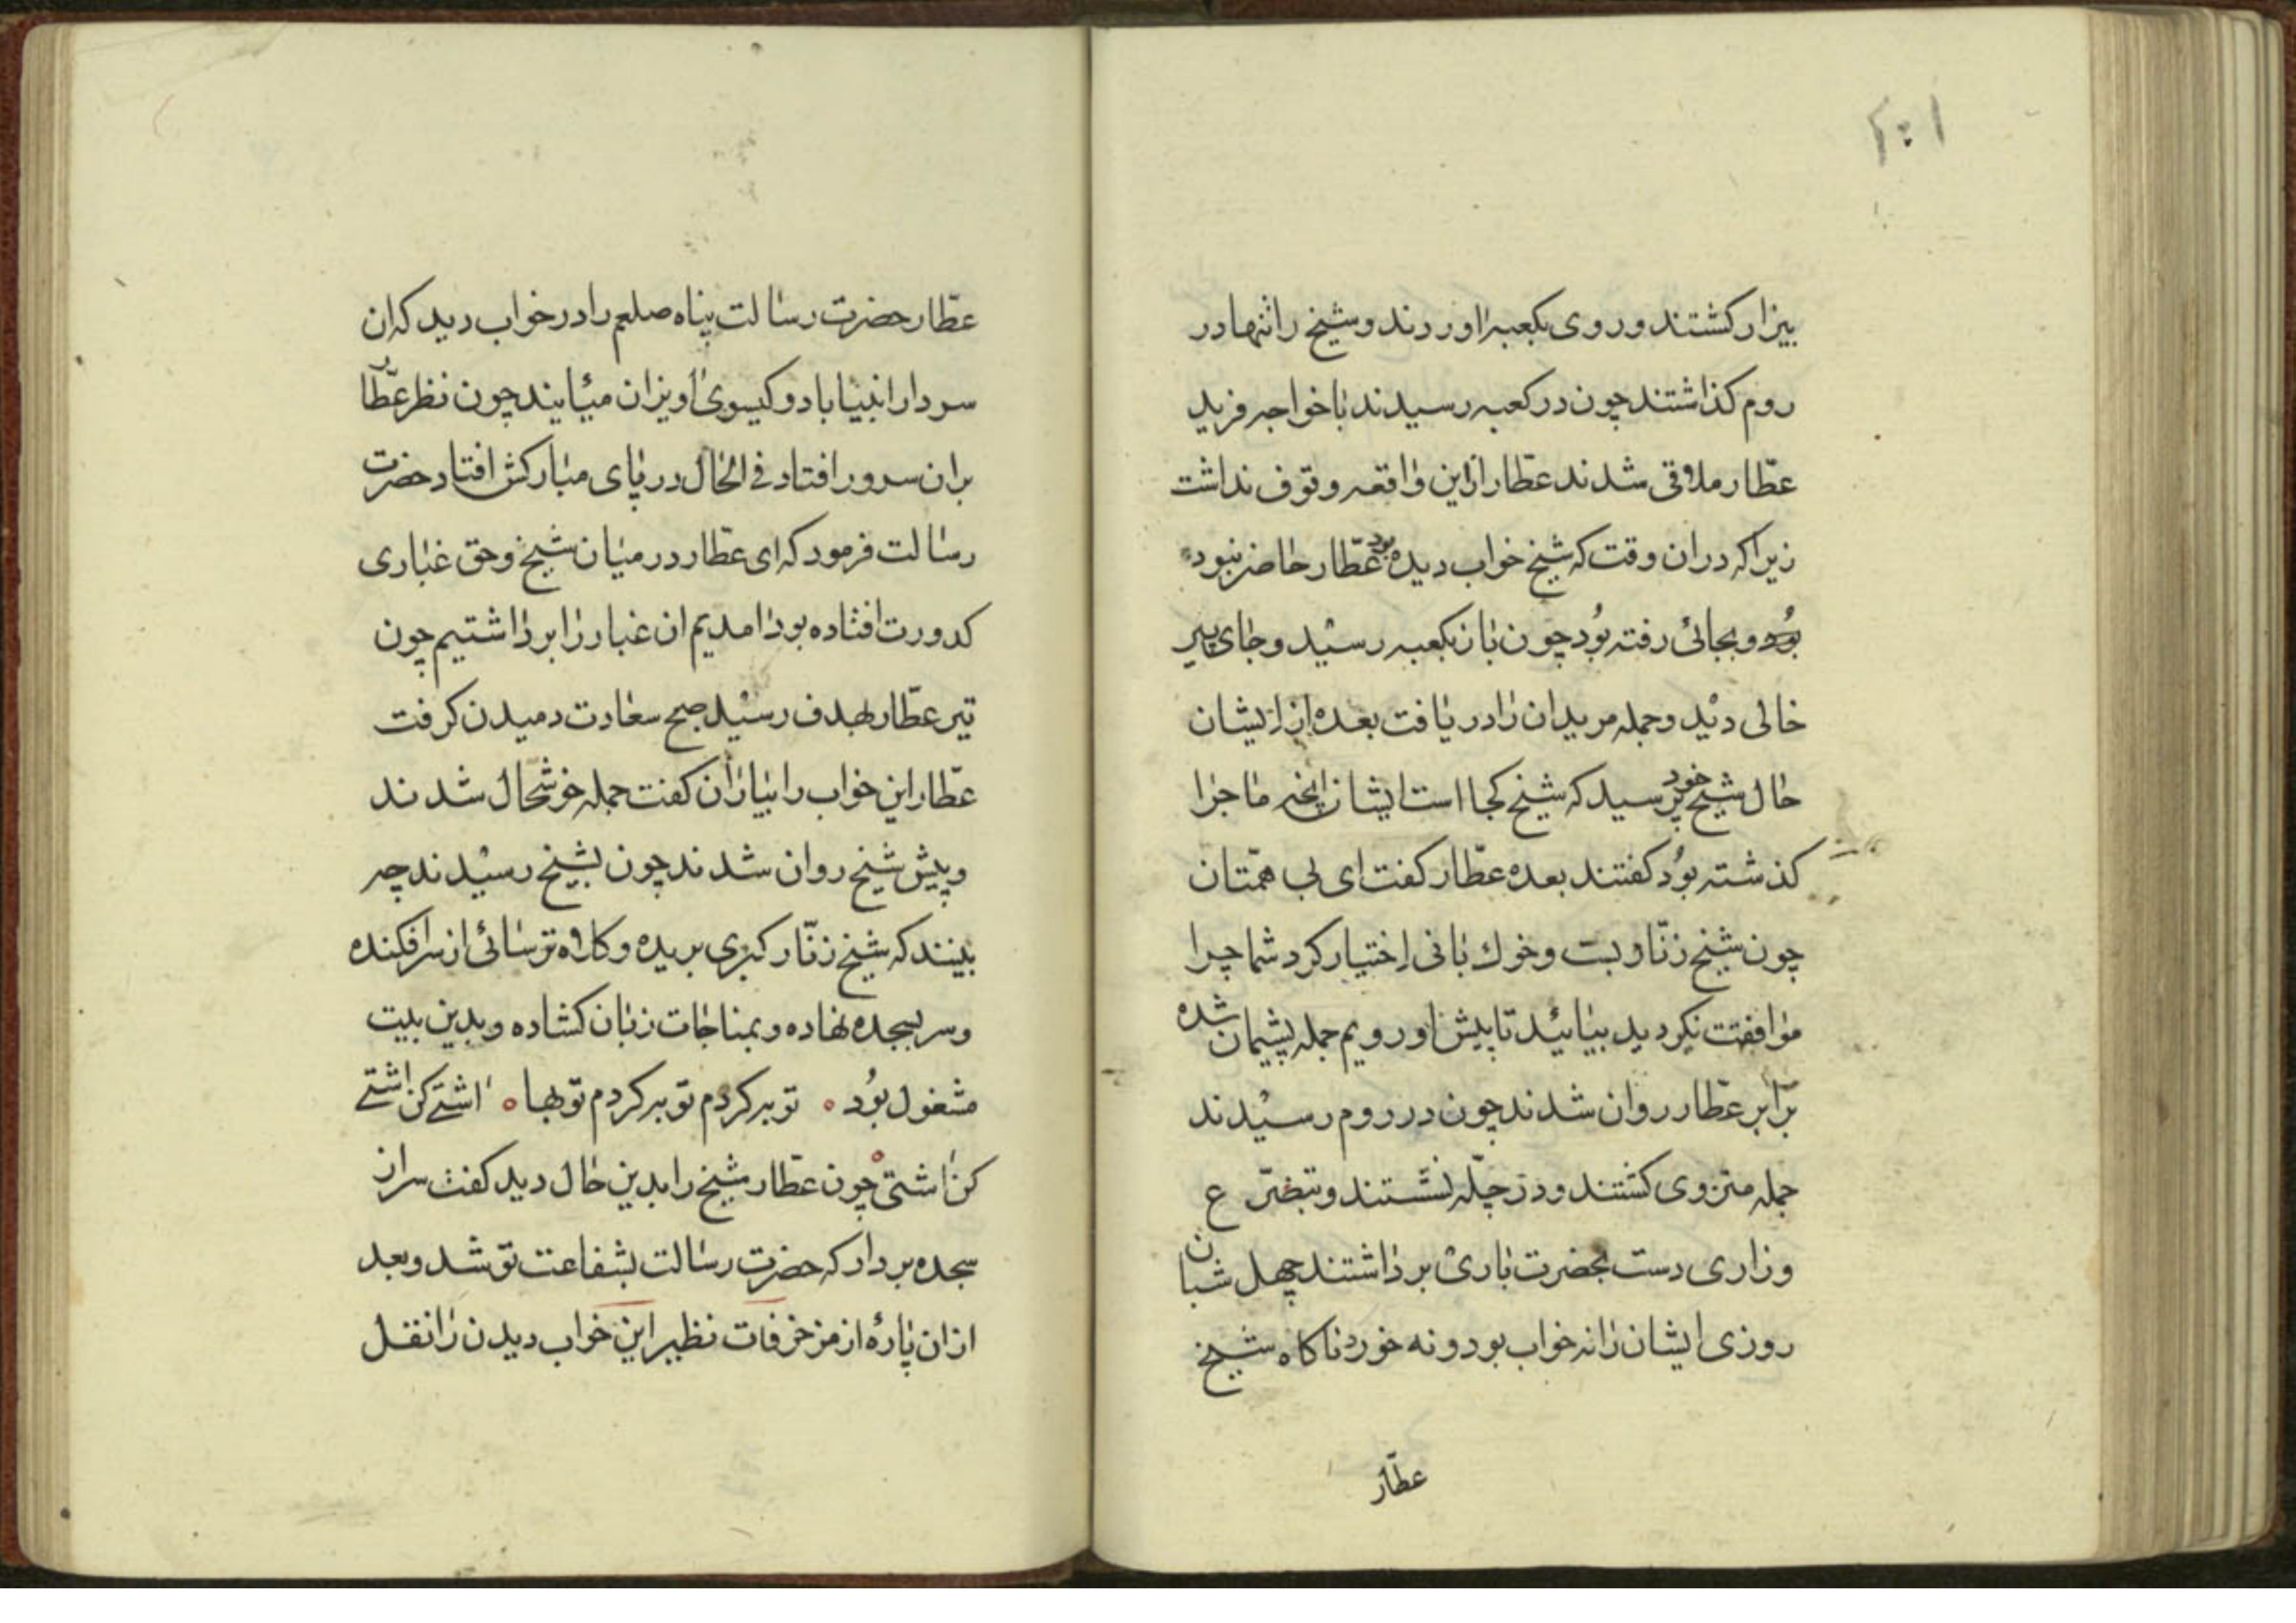 بیزار کشتند و روی بکعبه اوردند و شیخ را تنها در
روم کذاشتند چون در کعبه رسیدند باخواجه فرید
عطّار ملاقی شدند عطّار ازین واقعه وقوف نداشت
زیرا که دران وقت که شیخ خواب دیده بود عطّار حاضر نبود
بوده و بجائی رفته بُود چون باز بکعبه رسید و جای پیر
خالی دید و جمله مریدان را دریافت بعده از ایشان
حال شیخ خود پرسید که شیخ کجا است ایشان انچه ماجرا
کذشته بُود کفتند بعده عطّار کفت ای بی همّتان
چون شیخ زنّار بست و خوك بانی اختیار کرد شما چرا
موافقت نکردید بیائید تا پیش او رویم جمله پشیمان شده
برابر عطّار روان شدند چون در روم رسیدند
جمله منزوی کشتند و در چلّه نشستند و بتضرّع
وزاری دست بحضرت باری برداشتند چهل شبان
روزی ایشان را نه خواب بود و نه خورد ناکاه شیخ
عطّار
عطّار حضرت رسالت پناه صلعم را در خواب دید که ان
سردار انبیا با دو کیسوی اویزان میایند چون نظر عطّار
بران سرور افتاد فی الحال در پای مبارکش افتاد حضرت
رسالت فرمود که ای عطّار در میان شیخ و حق غباری
کدورت افتاده بود امدیم ان غبار را برداشتیم چون
تیر عطّار بهدف رسید صبح سعادت دمیدن کرفت
عطّار این خواب را بیاران کفت جمله خوشحال شدند
و پیش شیخ روان شدند چون بشیخ رسیدند چه
بینند که شیخ زنّار کبری بریده و کلاه ترسائی از سر افکنده
و سر بسجده نهاده و بمناجات زبان کشاده و بدین بیت
مشغول بُود ٥ توبه کردم توبه کردم توبها ٥ اشتی کن اشتی
کن اشتی ٥ چون عطّار شیخ را بدین حال دید کفت سر از
سجده بردار که حضرت رسالت بشفاعت تو شد و بعد
ازان پارهٔ از مزخرفات نظیر این خواب دیدن را نقل